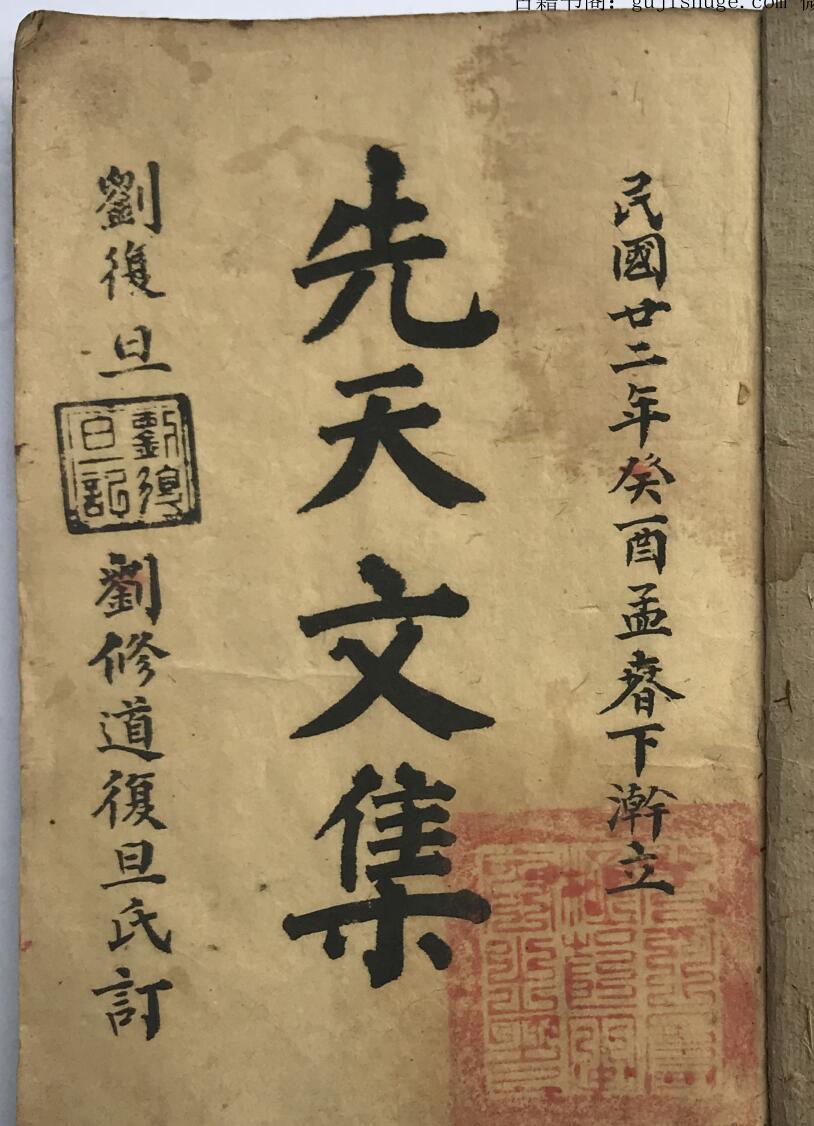 古籍书阁：gujishuge.com 微
民國廿二年癸酉孟春下澣立
先天文集
劉復旦
劉復旦記
劉修道復旦氏訂